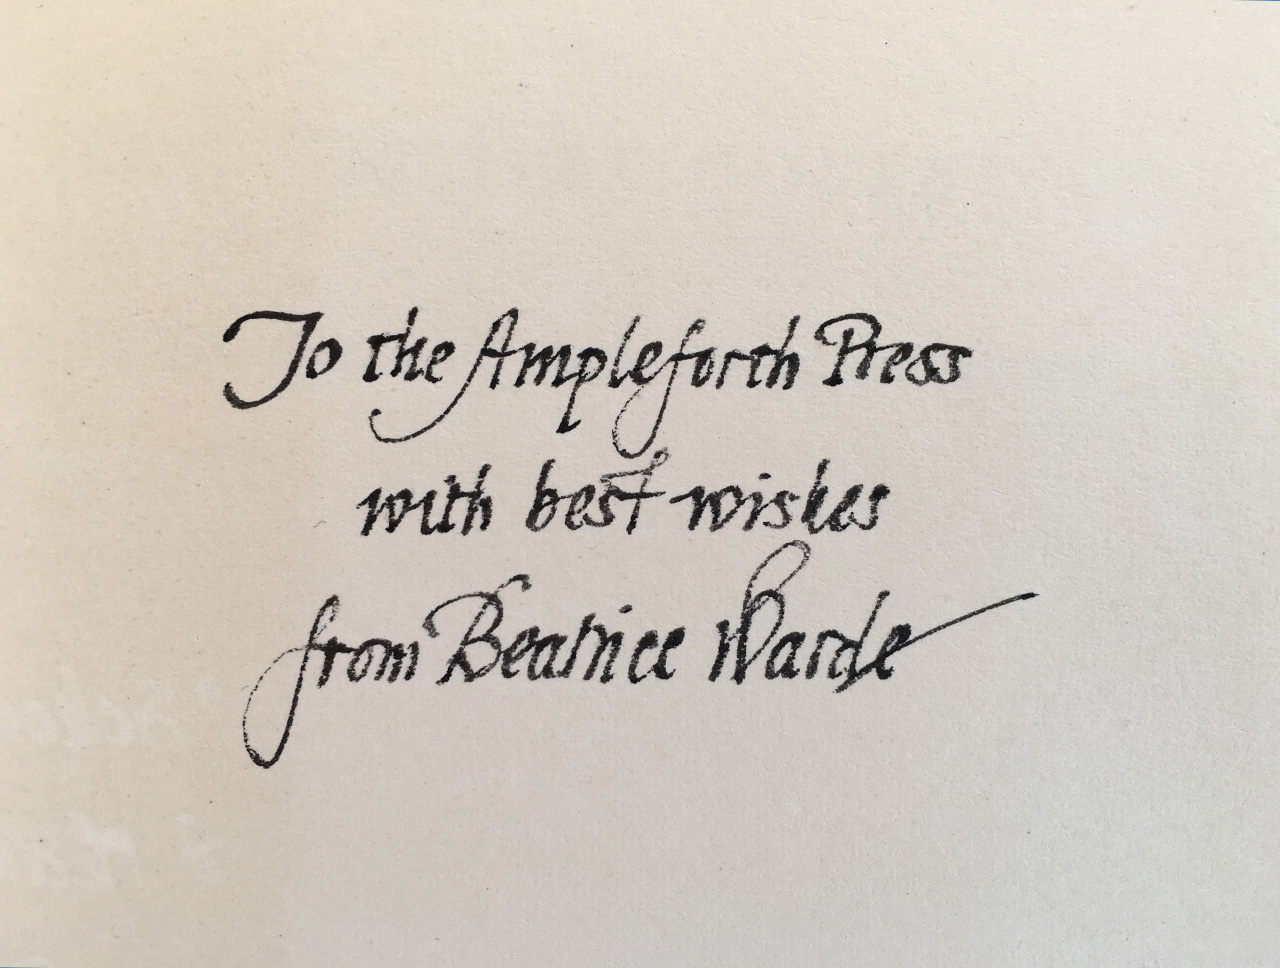 To the Ampleforth Press
with best wishes
from Beatrice Warde